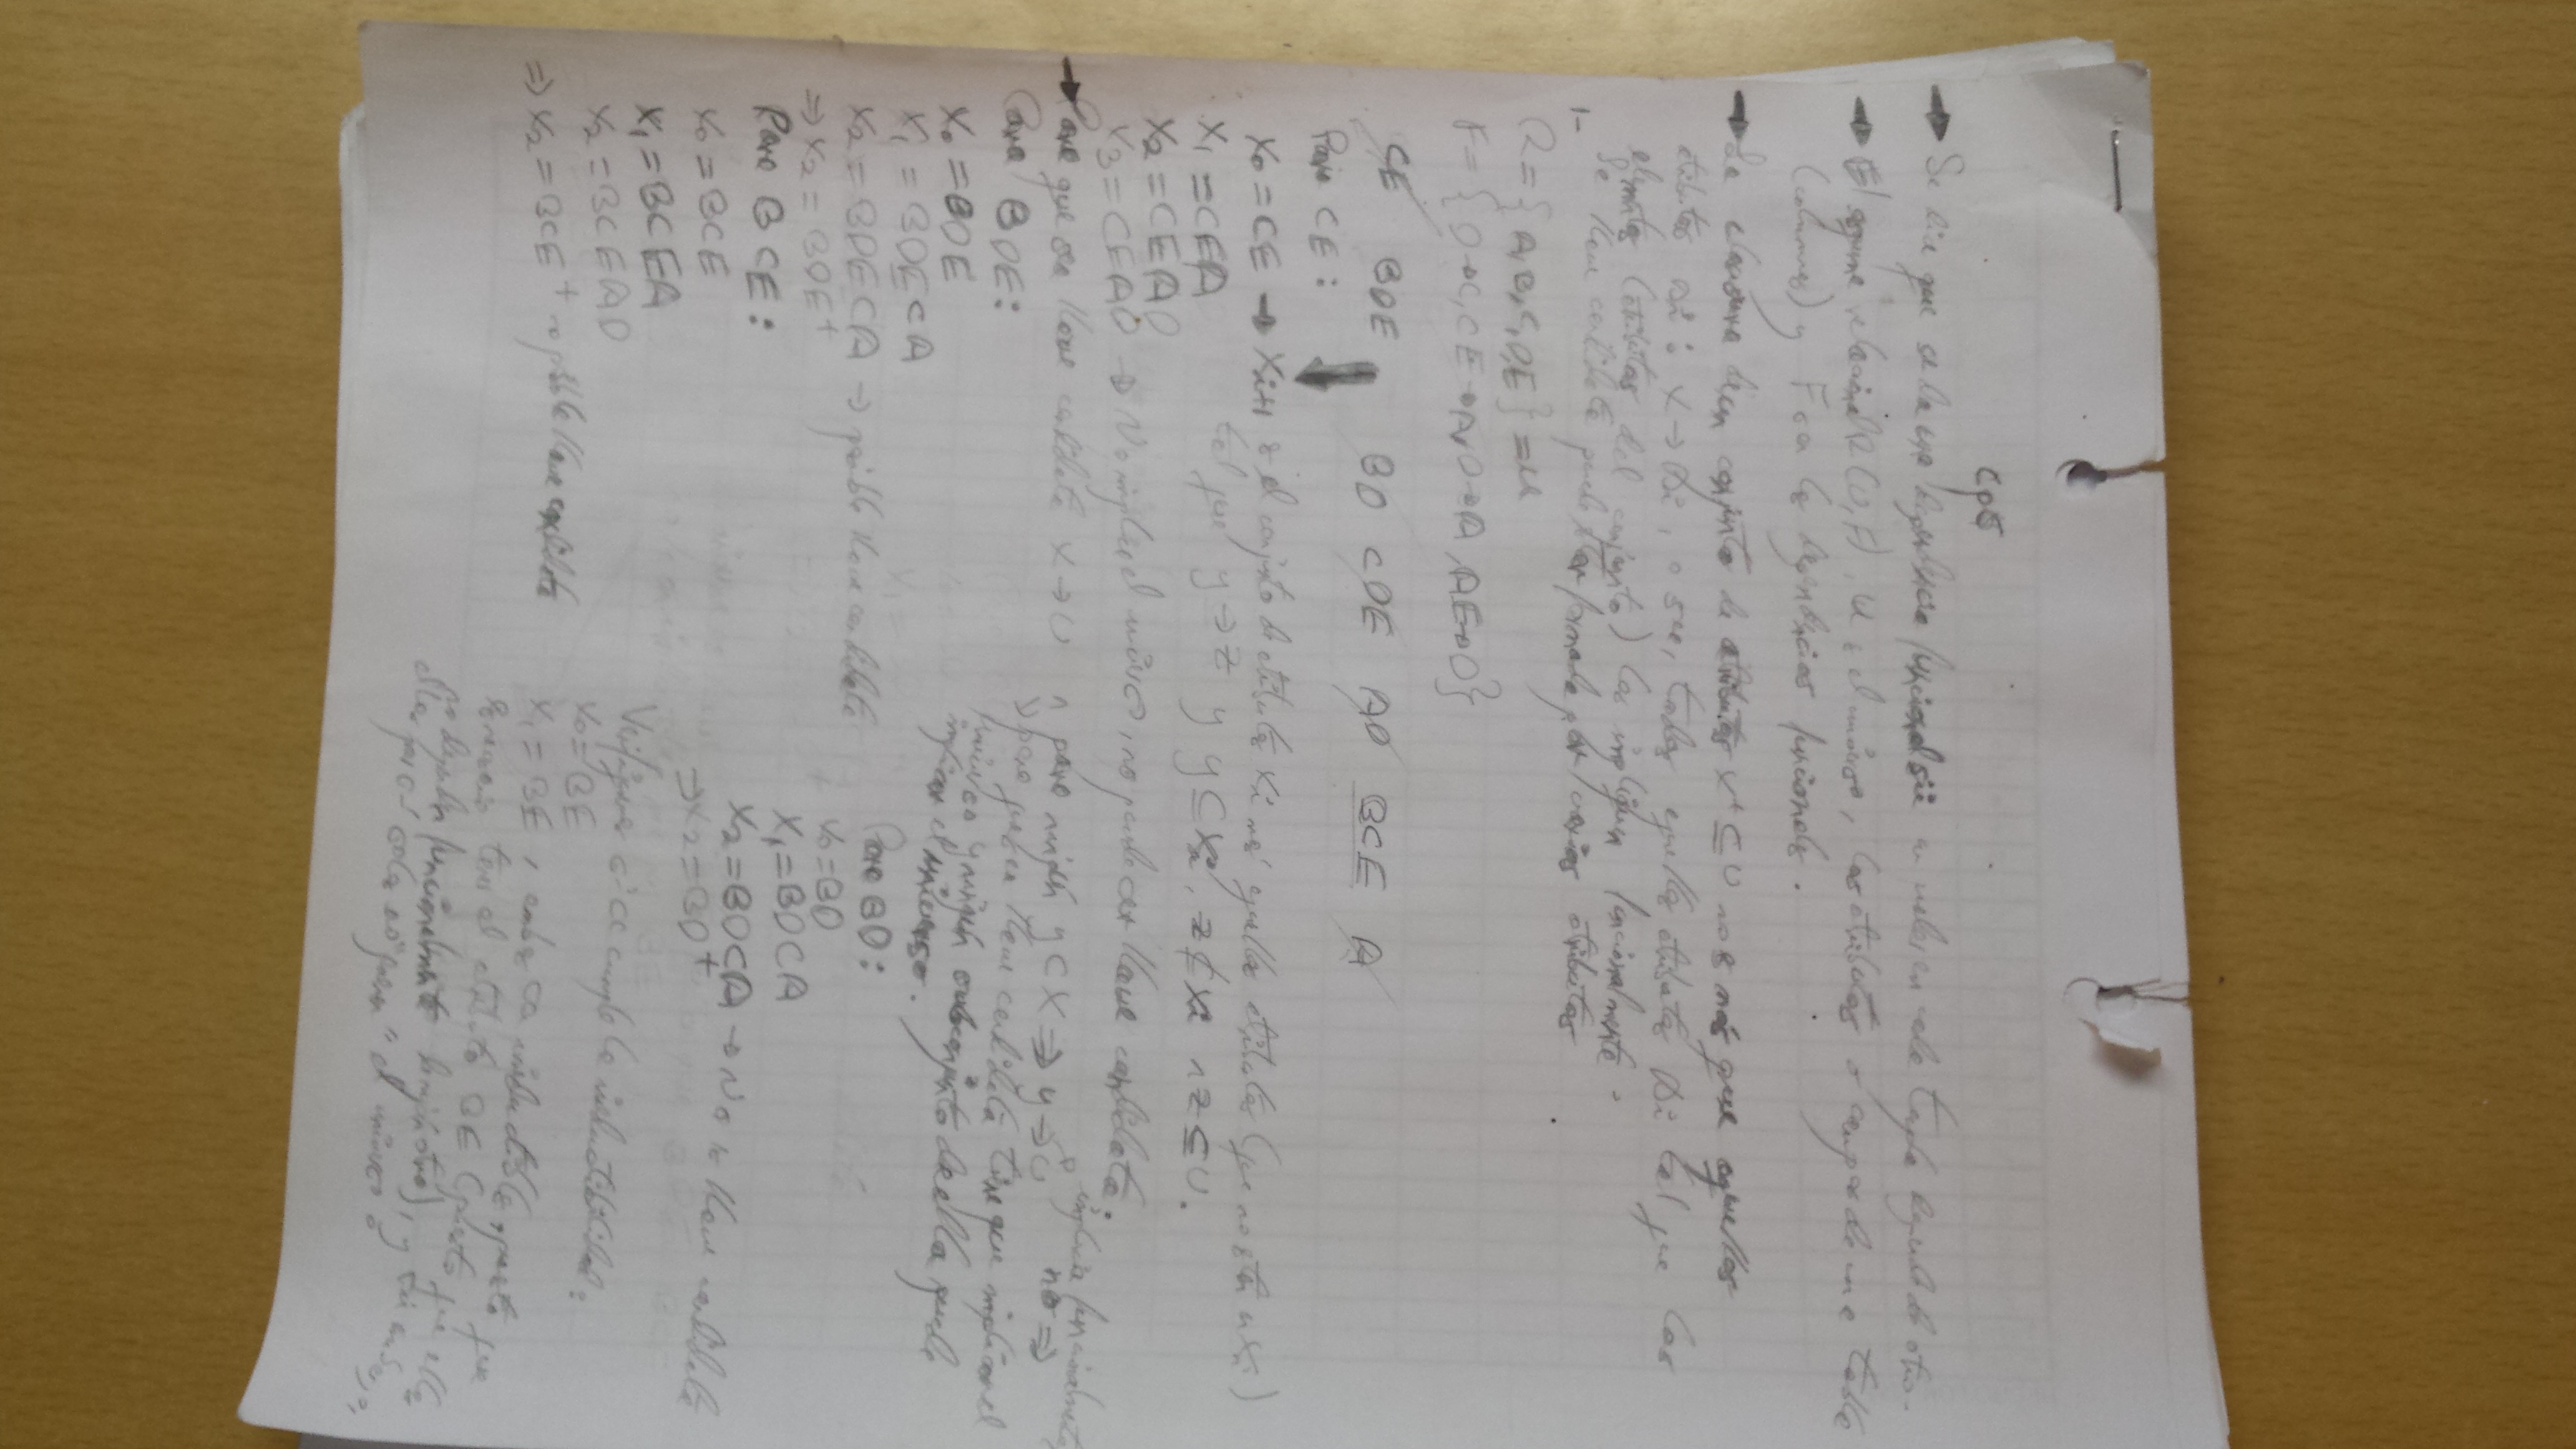 Cp5
→ Se dice que se da una dependencia funcional sii un valor en cada tupla depende de otro.
→ El esquema relacional R(U,F), U es el universo, los atributos o campos de una tabla
(columnas) y F son las dependencias funcionales.
→ La clausura de un conjunto de atributos X⁺ ⊆ U no es más que aquellos
atributos Ai : X → Ai, o sea, todos aquellos atributos Ai tal que los
elementos (atributos del conjunto) los impliquen funcionalmente.
La llave candidata puede estar formada por varios atributos
1-
R = {A,B,C,D,E} = U
F = {D→C, CE→A, D→A, AE→D}
CE BDE BD CDE AD BCE A
Para CE:
X₀ = CE → Xi+1 es el conjunto de atributos Xi más aquellos atributos (que no estén en Xi)
tal que y → z y y ⊆ Xi, z ⊄ Xi ∧ z ⊆ U.
X₁ = CEA
X₂ = CEAD
X₃ = CEAD → No implica el universo, no puede ser llave candidata.
→ Para que sea llave candidata X → U ∧ para ningún y ⊂ X ⇒ y → U
implicia funcionalmente, no ⇒
para que sea llave candidata tiene que implicar el
universo y ningún subconjunto de ella puede
implicar el universo.
Para BDE:
X₀ = BDE
X₁ = BDECA
X₂ = BDECA → posible llave candidata
⇒ X₂ = BDE⁺
Para BCE:
X₀ = BCE
X₁ = BCEA
X₂ = BCEAD
⇒ X₂ = BCE⁺ → posible llave candidata
Para BD:
X₀ = BD
X₁ = BDCA
X₂ = BDCA → No es llave candidata
⇒ X₂ = BD⁺
Verifiquemos si se cumple la irreductibilidad:
X₀ = BE
X₁ = BE, ambas son irreductibles, puesto que
es necesario tener el atributo BE (puesto que ellos
no dependen funcionalmente de ningún otro), y
ellos por sí solos no "generan" el universo